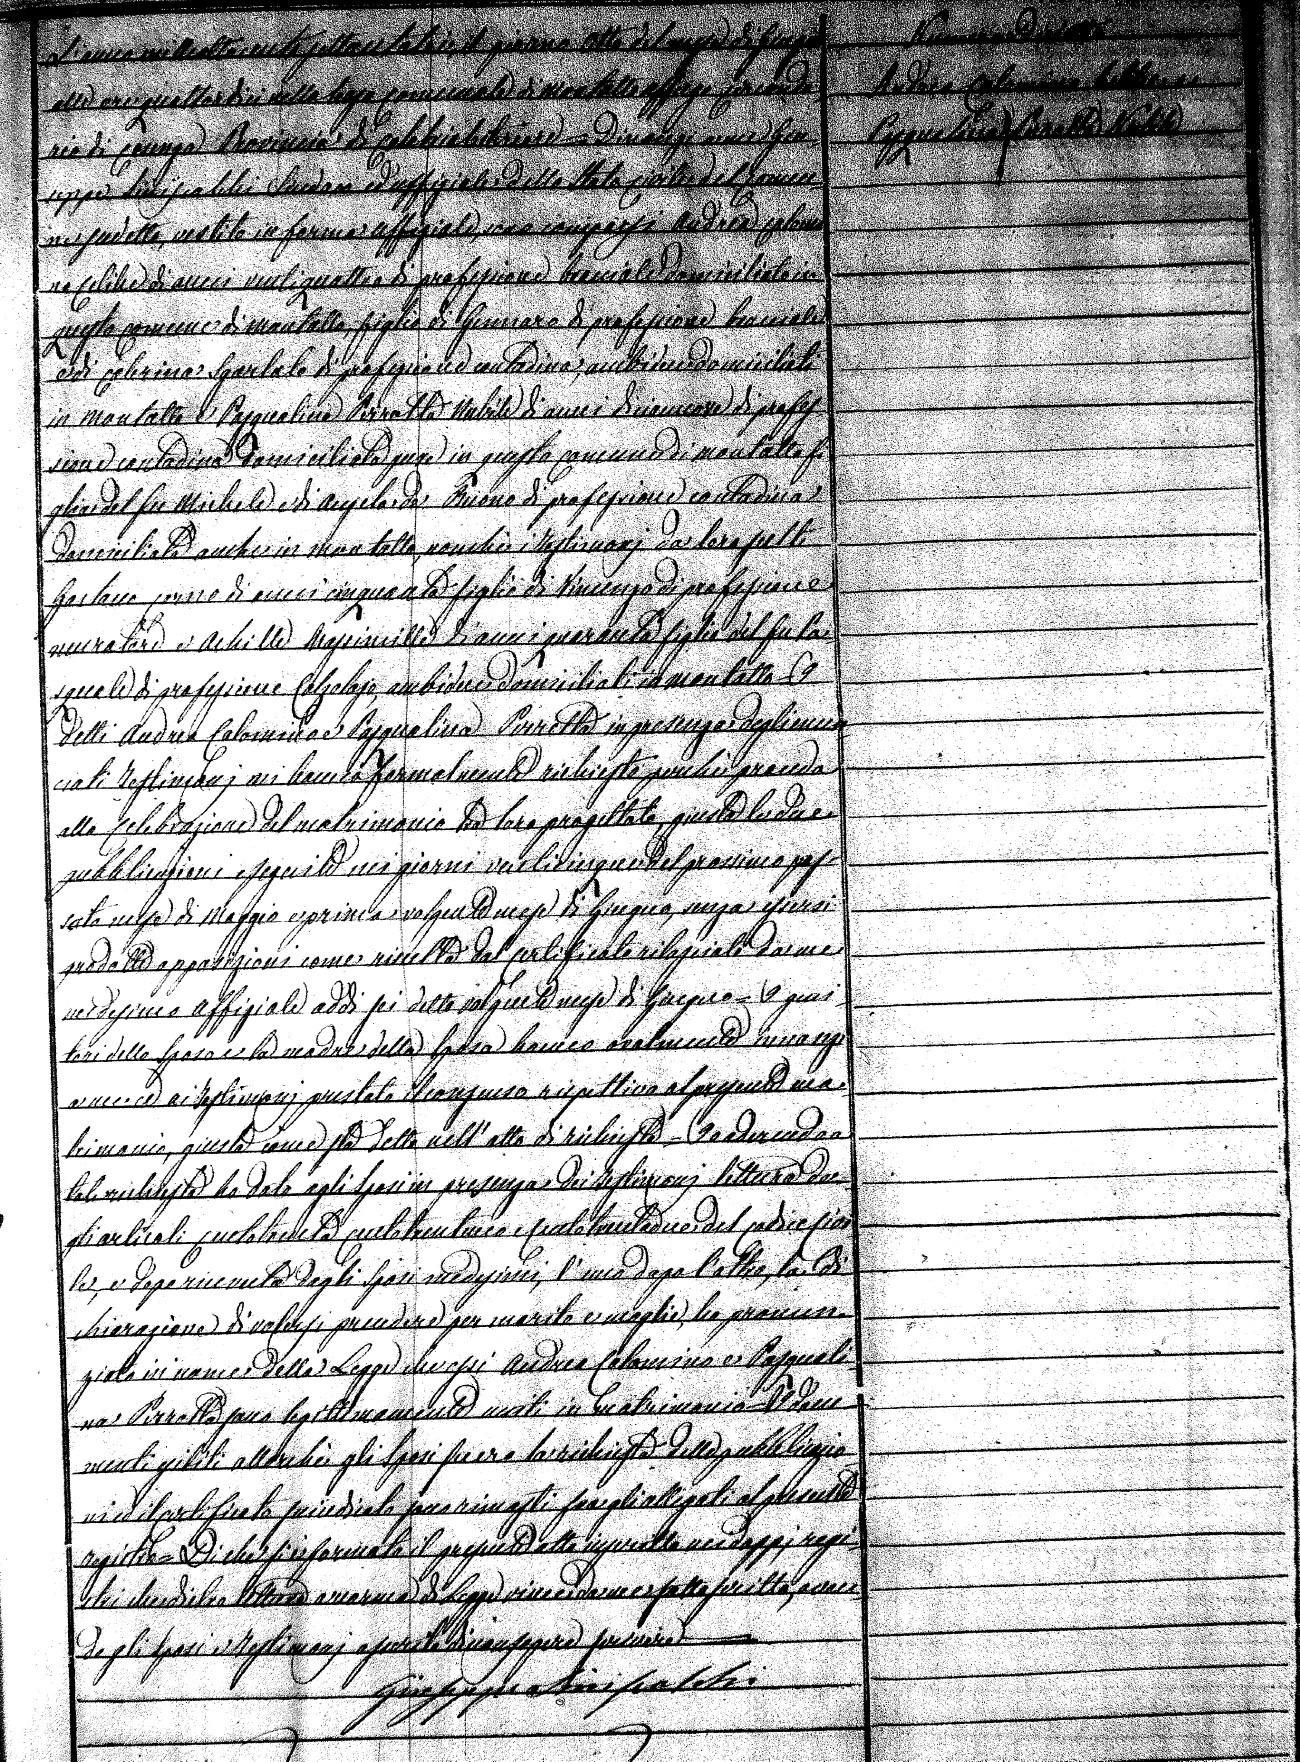 L'anno milleottocentosettantatre, il giorno otto del mese di Giugno
alle ore quattordici nella casa comunale di Montalto Uffugo circonda
rio di Cosenza Provincia di Calabria Citeriore = Dinanzi a me Giu
seppe Siniscalchi Sindaco ed uffiziale dello Stato Civile del Comu
ne sudetto, vestito in forma uffiziale, sono comparsi Andrea Colomi
no celibe di anni ventiquattro di professione bracciale domiciliato in
questo comune di Montalto, figlio di Gennaro di professione bracciale
e di Caterina di professione contadina, ambidue domiciliati
in Montalto e Pasqualina Perrotta Nubile di anni diciannove di profes
sione contadina domiciliata pure in questo comune di Montalto fi
glia del fu Michele e di Angela da Fuono di professione contadina
domiciliata anche in Montalto, nonché i Testimonj da loro scelti
Gaetano di anni cinquanta figlio di Vincenzo di professione
muratore e Achille di anni quaranta figlio del fu Pa
squale di professione Calzolajo, ambidue domiciliati in Montalto = I
detti Andrea Colomino e Pasqualina Perrotta in presenza degli enun
ciati Testimonj mi hanno formalmente richiesto perché proceda
alla celebrazione del matrimonio tra loro progettato, giusta le due
pubblicazioni eseguite nei giorni venticinque del prossimo pas
sato mese di Maggio e primo volgente mese di Giugno, senza essersi
prodotte opposizioni come risulta dal certificato rilasciato da me
medesimo Uffiziale addì sei detto volgente mese di Giugno = I geni
tori dello sposo e la madre della sposa hanno oralmente innanzi
a me ed ai Testimonj prestato il consenso rispettivo al presente ma
trimonio, giusta come sta detto nell'atto di richiesta = Io aderendo a
tale richiesta ho dato agli sposi in presenza dei Testimonj lettura de
gli articoli centotrenta centotrentuno e centotrentadue del codice civi
le, e dopo ricevuta dagli sposi medesimi, l'uno dopo l'altro, la di
chiarazione di volersi prendere per marito e moglie, ho pronun
ziato in nome della Legge che essi Andrea Colomino e Pasquali
na Perrotta sono legittimamente uniti in matrimonio = I docu
menti esibiti allorché gli sposi fecero la richiesta delle pubblicazio
ni ed il certificato suindicato sono rimasti fra gli allegati al presente
registro = Di che si è formato il presente atto inscritto nei doppj regi
stri che dietro lettura a norma di Legge viene da me sottoscritto, avendo
gli sposi e Testimonj asserito di non sapere scrivere
Giuseppe Siniscalchi
Numero
Andrea Colomino Celibe
Pasqualina Perrotta Nubile